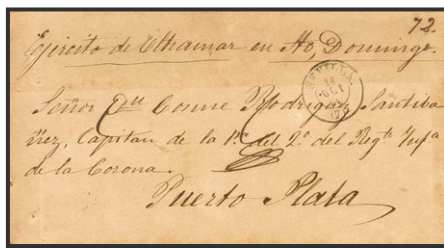 72.
Ejército de Ultramar en Sto, Domingo.
SEVILLA
Señor Dn Cosme Rodriguez Santiba
ñez, Capitan de la 1ª del 2º del Regto Infa
de la Corona.
Puerto Plata